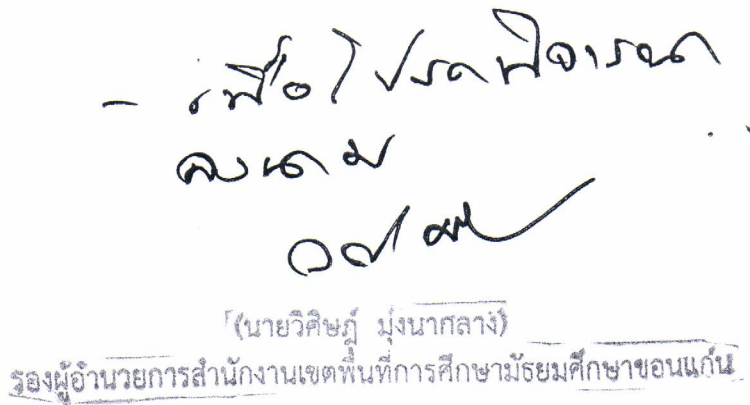 - เพื่อโปรดพิจารณา
ลงนาม
(นายวิศิษฎ์ มุ่งนากลาง)
รองผู้อำนวยการสำนักงานเขตพื้นที่การศึกษามัธยมศึกษาขอนแก่น